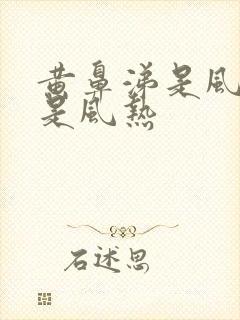 黄鼻涕是風
是風热
石述思